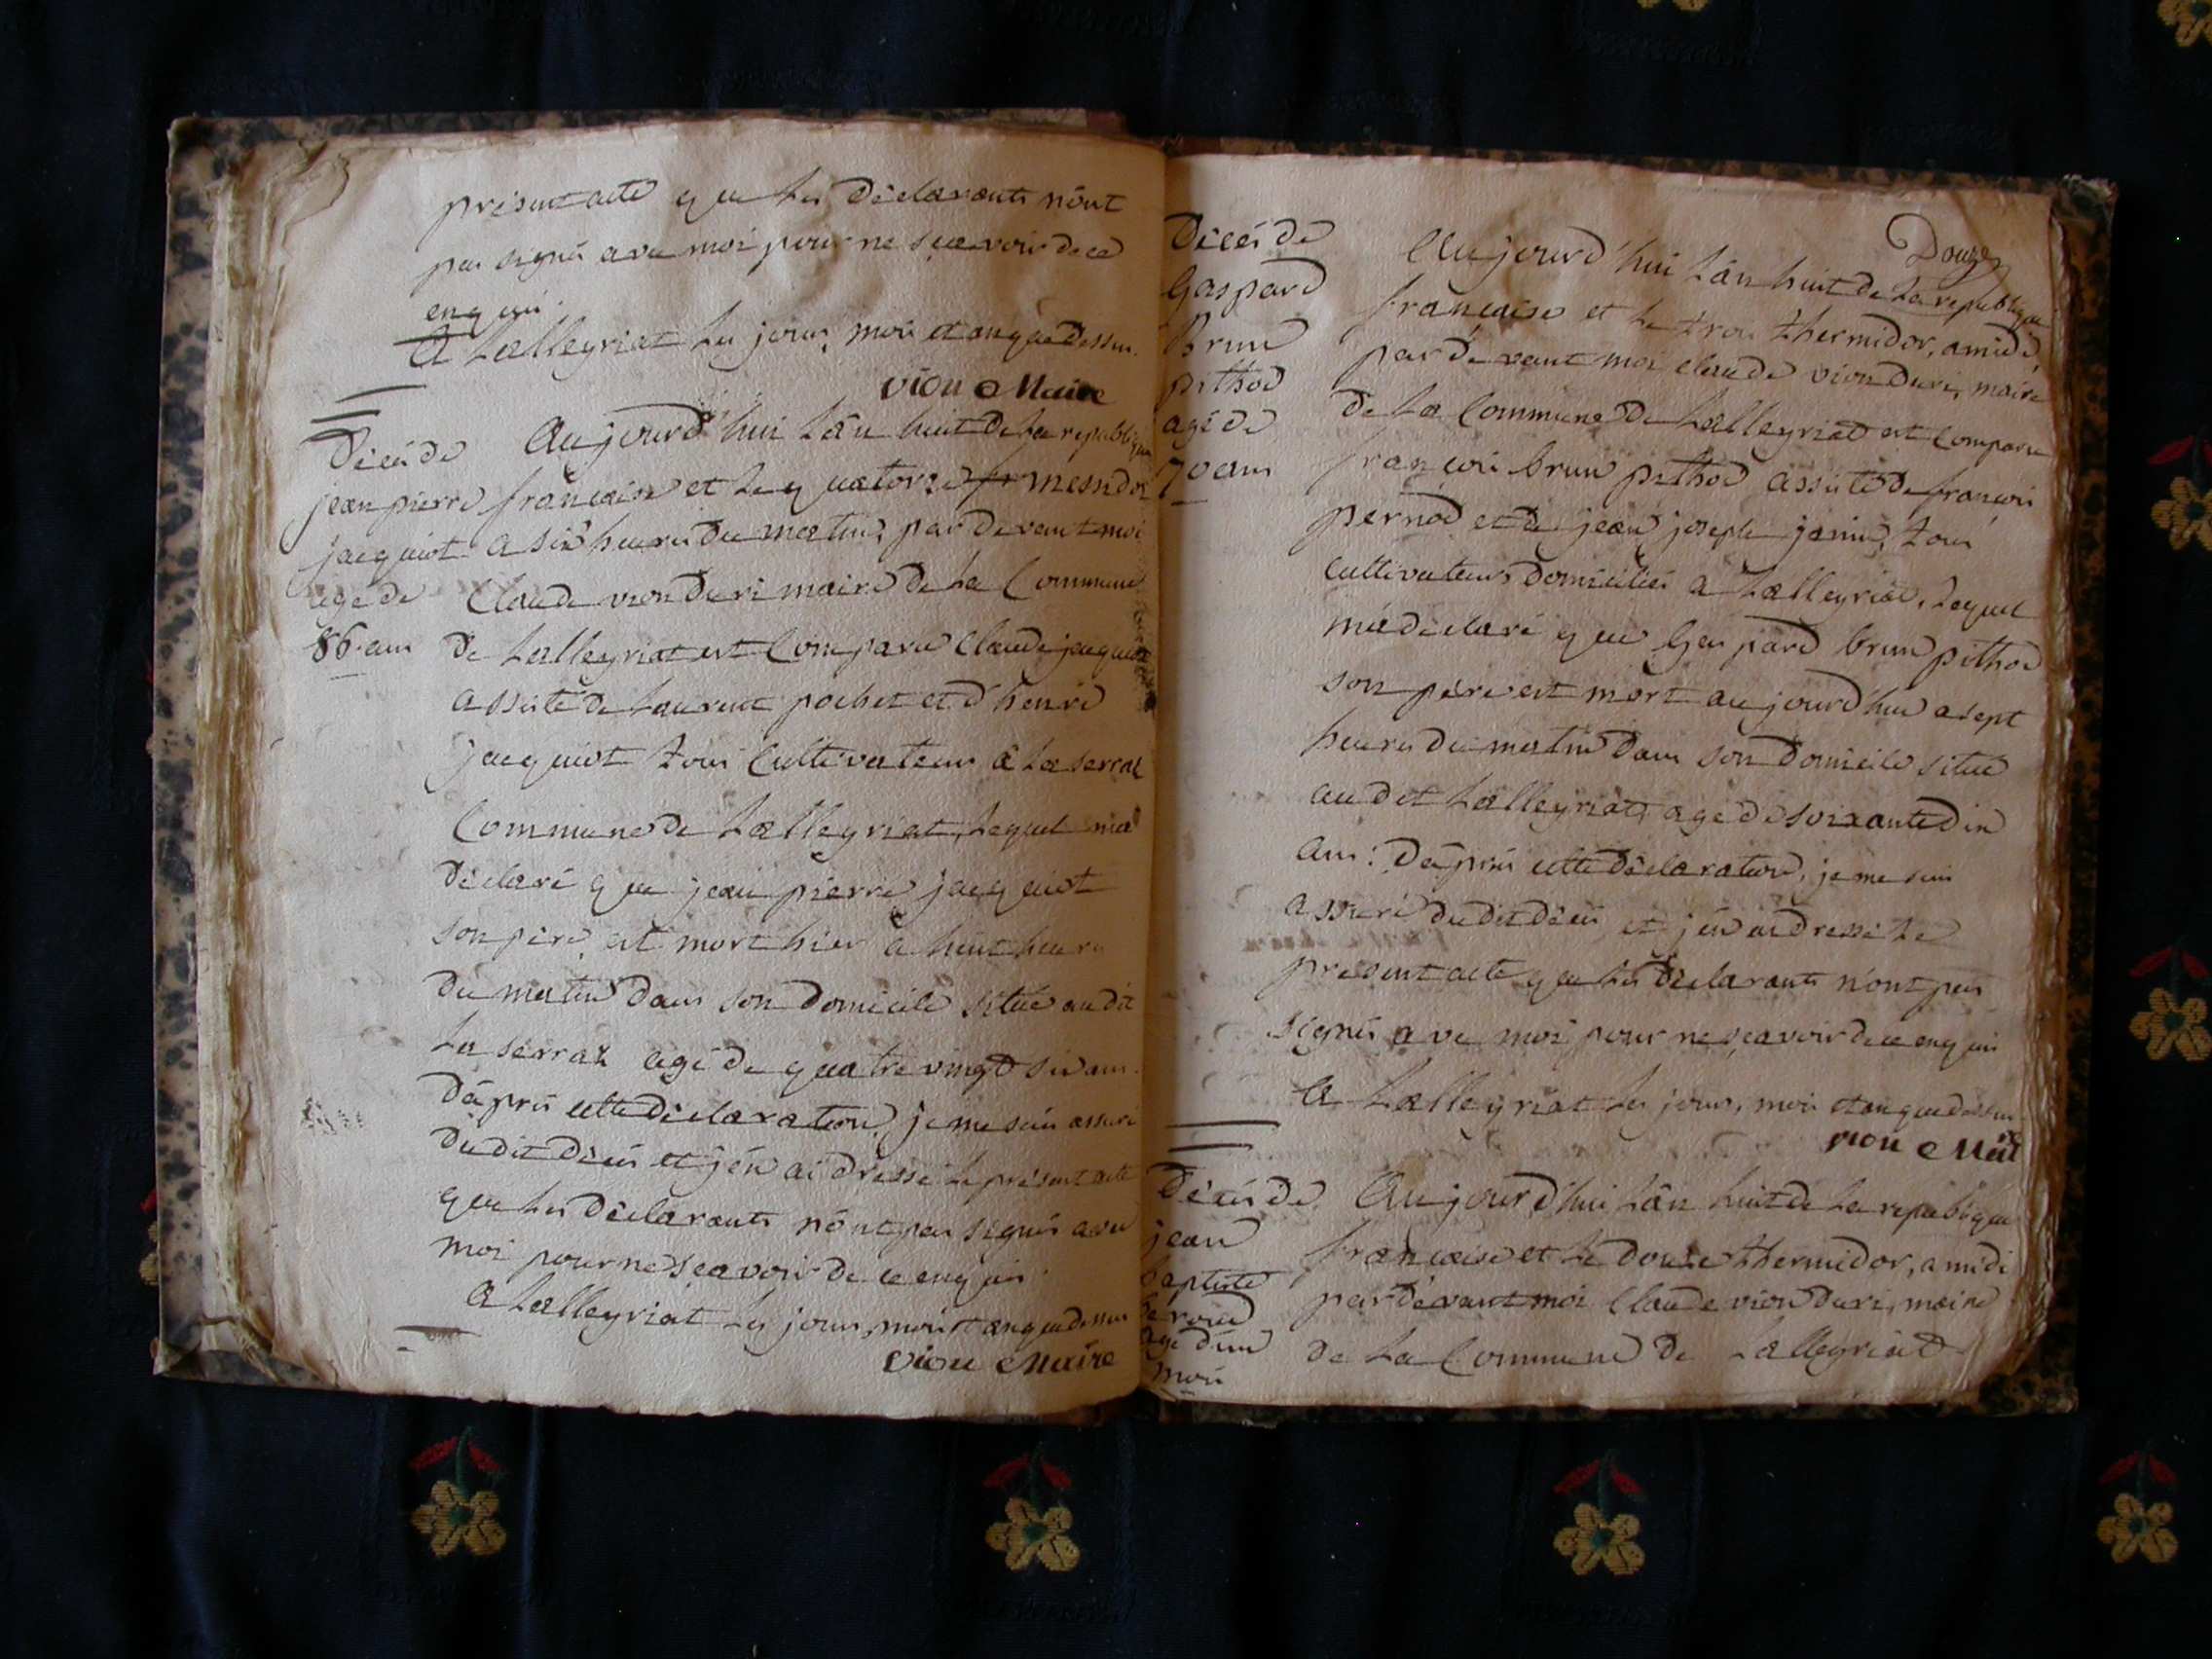 présent acte que les déclarants n'ont
pas signés avec moi pour ne sçavoir de ce
enquis.
A Lalleyriat les jours, mois et an que dessus.
vion Maire
Décès de
jean pierre
jacquiot
agé de
86 ans
Aujourd'hui l'an huit de la republique
francaise et le quatorze messidor
a six heures du matin, par devant moi
Claude vion duri maire de la Commune
de Lalleyriat est Comparu Claude jacquiot
assisté de Laurent pochet et d'henri
jacquiot tous Cultivateurs a La serraz
Commune de Lalleyriat, Lequel m'a
déclaré que jean pierre jacquiot
son père est mort hier a huit heures
du matin dans son domicile situé au dit
La serraz agé de quatre vingt six ans.
D'après cette déclaration, je me suis assuré
du dit décès et j'én ai dressé le présent acte
que les déclarants n'ont pas signés avec
moi pour ne sçavoir de ce enquis.
A Lalleyriat les jours, mois et an que dessus
vion Maire
Douze
Décès de
Gaspard
Brun
pithod
agé de
70 ans
Aujourd'hui l'an huit de la republique
francaise et le trois thermidor, a midi,
par dévant moi claude vion duri, maire
de la Commune de Lalleyriat est Comparu
francois brun pithod assisté de francois
pernod et de jean joseph janin, tous
Cultivateurs domiciliés a Lalleyriat, Lequel
m'a déclaré que Gaspard brun pithod
son père est mort aujourd'hui a sept
heures du matin dans son domicile situé
au dit Lalleyriat, agé de soixante dix
ans. D'après cette déclaration, je me suis
assuré du dit décès et j'én ai dressé le
present acte que les déclarants n'ont pas
signés avec moi pour ne sçavoir de ce enquis
A Lalleyriat les jours, mois et an que dessus
vion Maire
Décès de
jean
baptiste
agé d'un
mois
Aujourd'hui l'an huit de la republique
francaise et le douze thermidor, a midi
par dévant moi Claude vion duri, maire
de la Commune de Lalleyriat